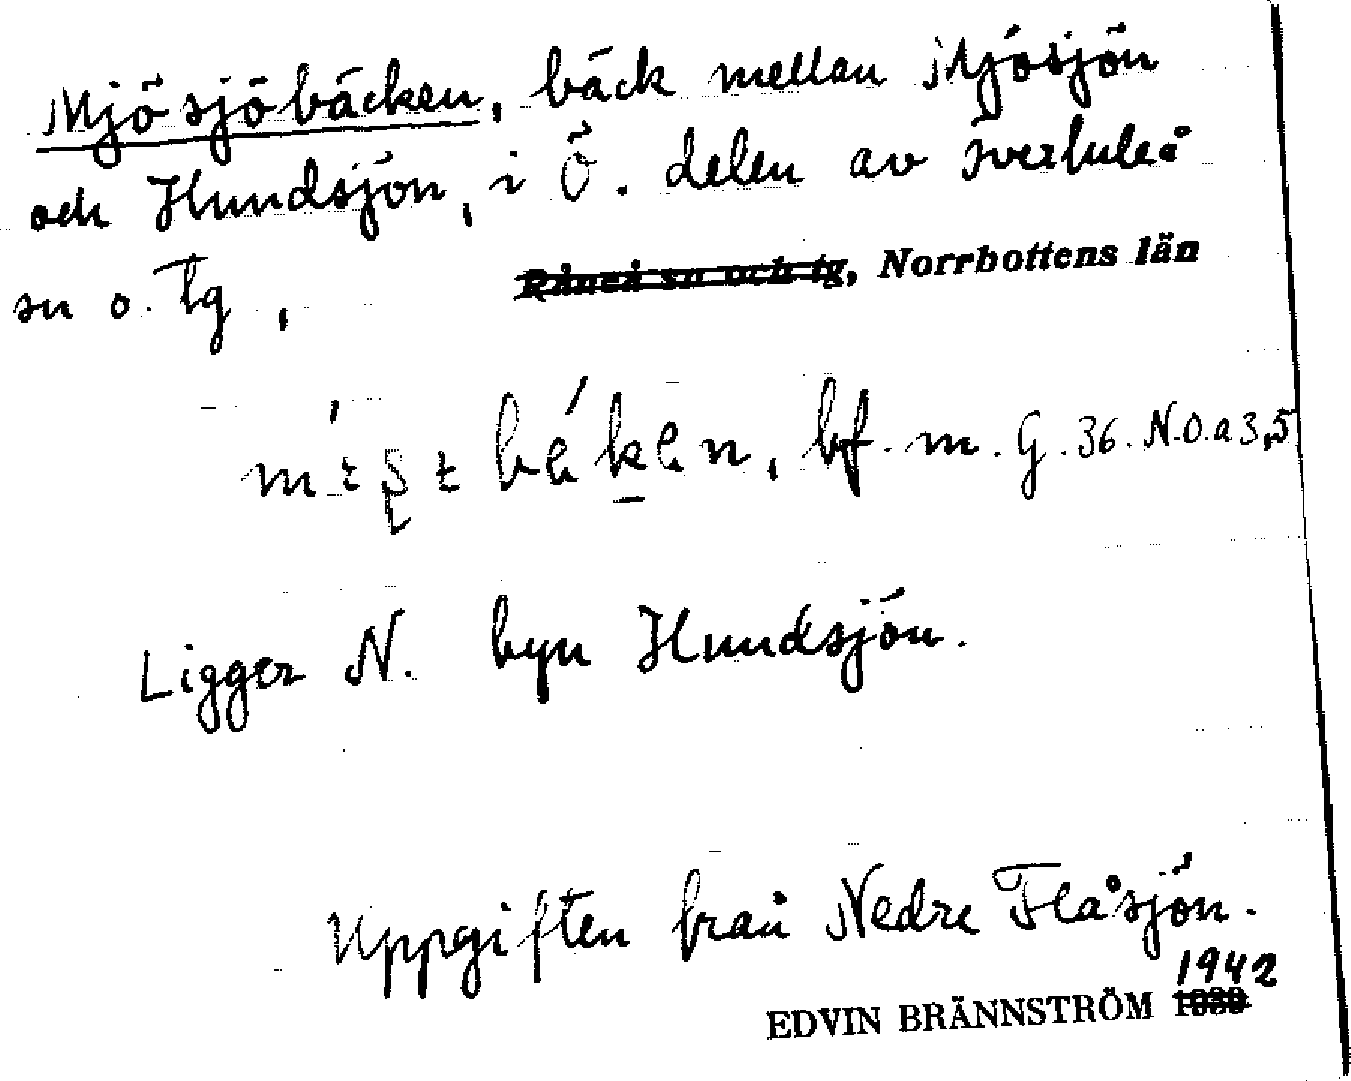 Mjösjöbäcken, bäck mellan Mjösjön
och Hundsjön, i Ö. delen av Överluleå
sn o. tg, Råneå sn och tg, Norrbottens län
bf. m. G. 36. N.O. a 3,5
Ligger N. byn Hundsjön.
Uppgiften från Nedre Flåsjön.
1942
EDVIN BRÄNNSTRÖM